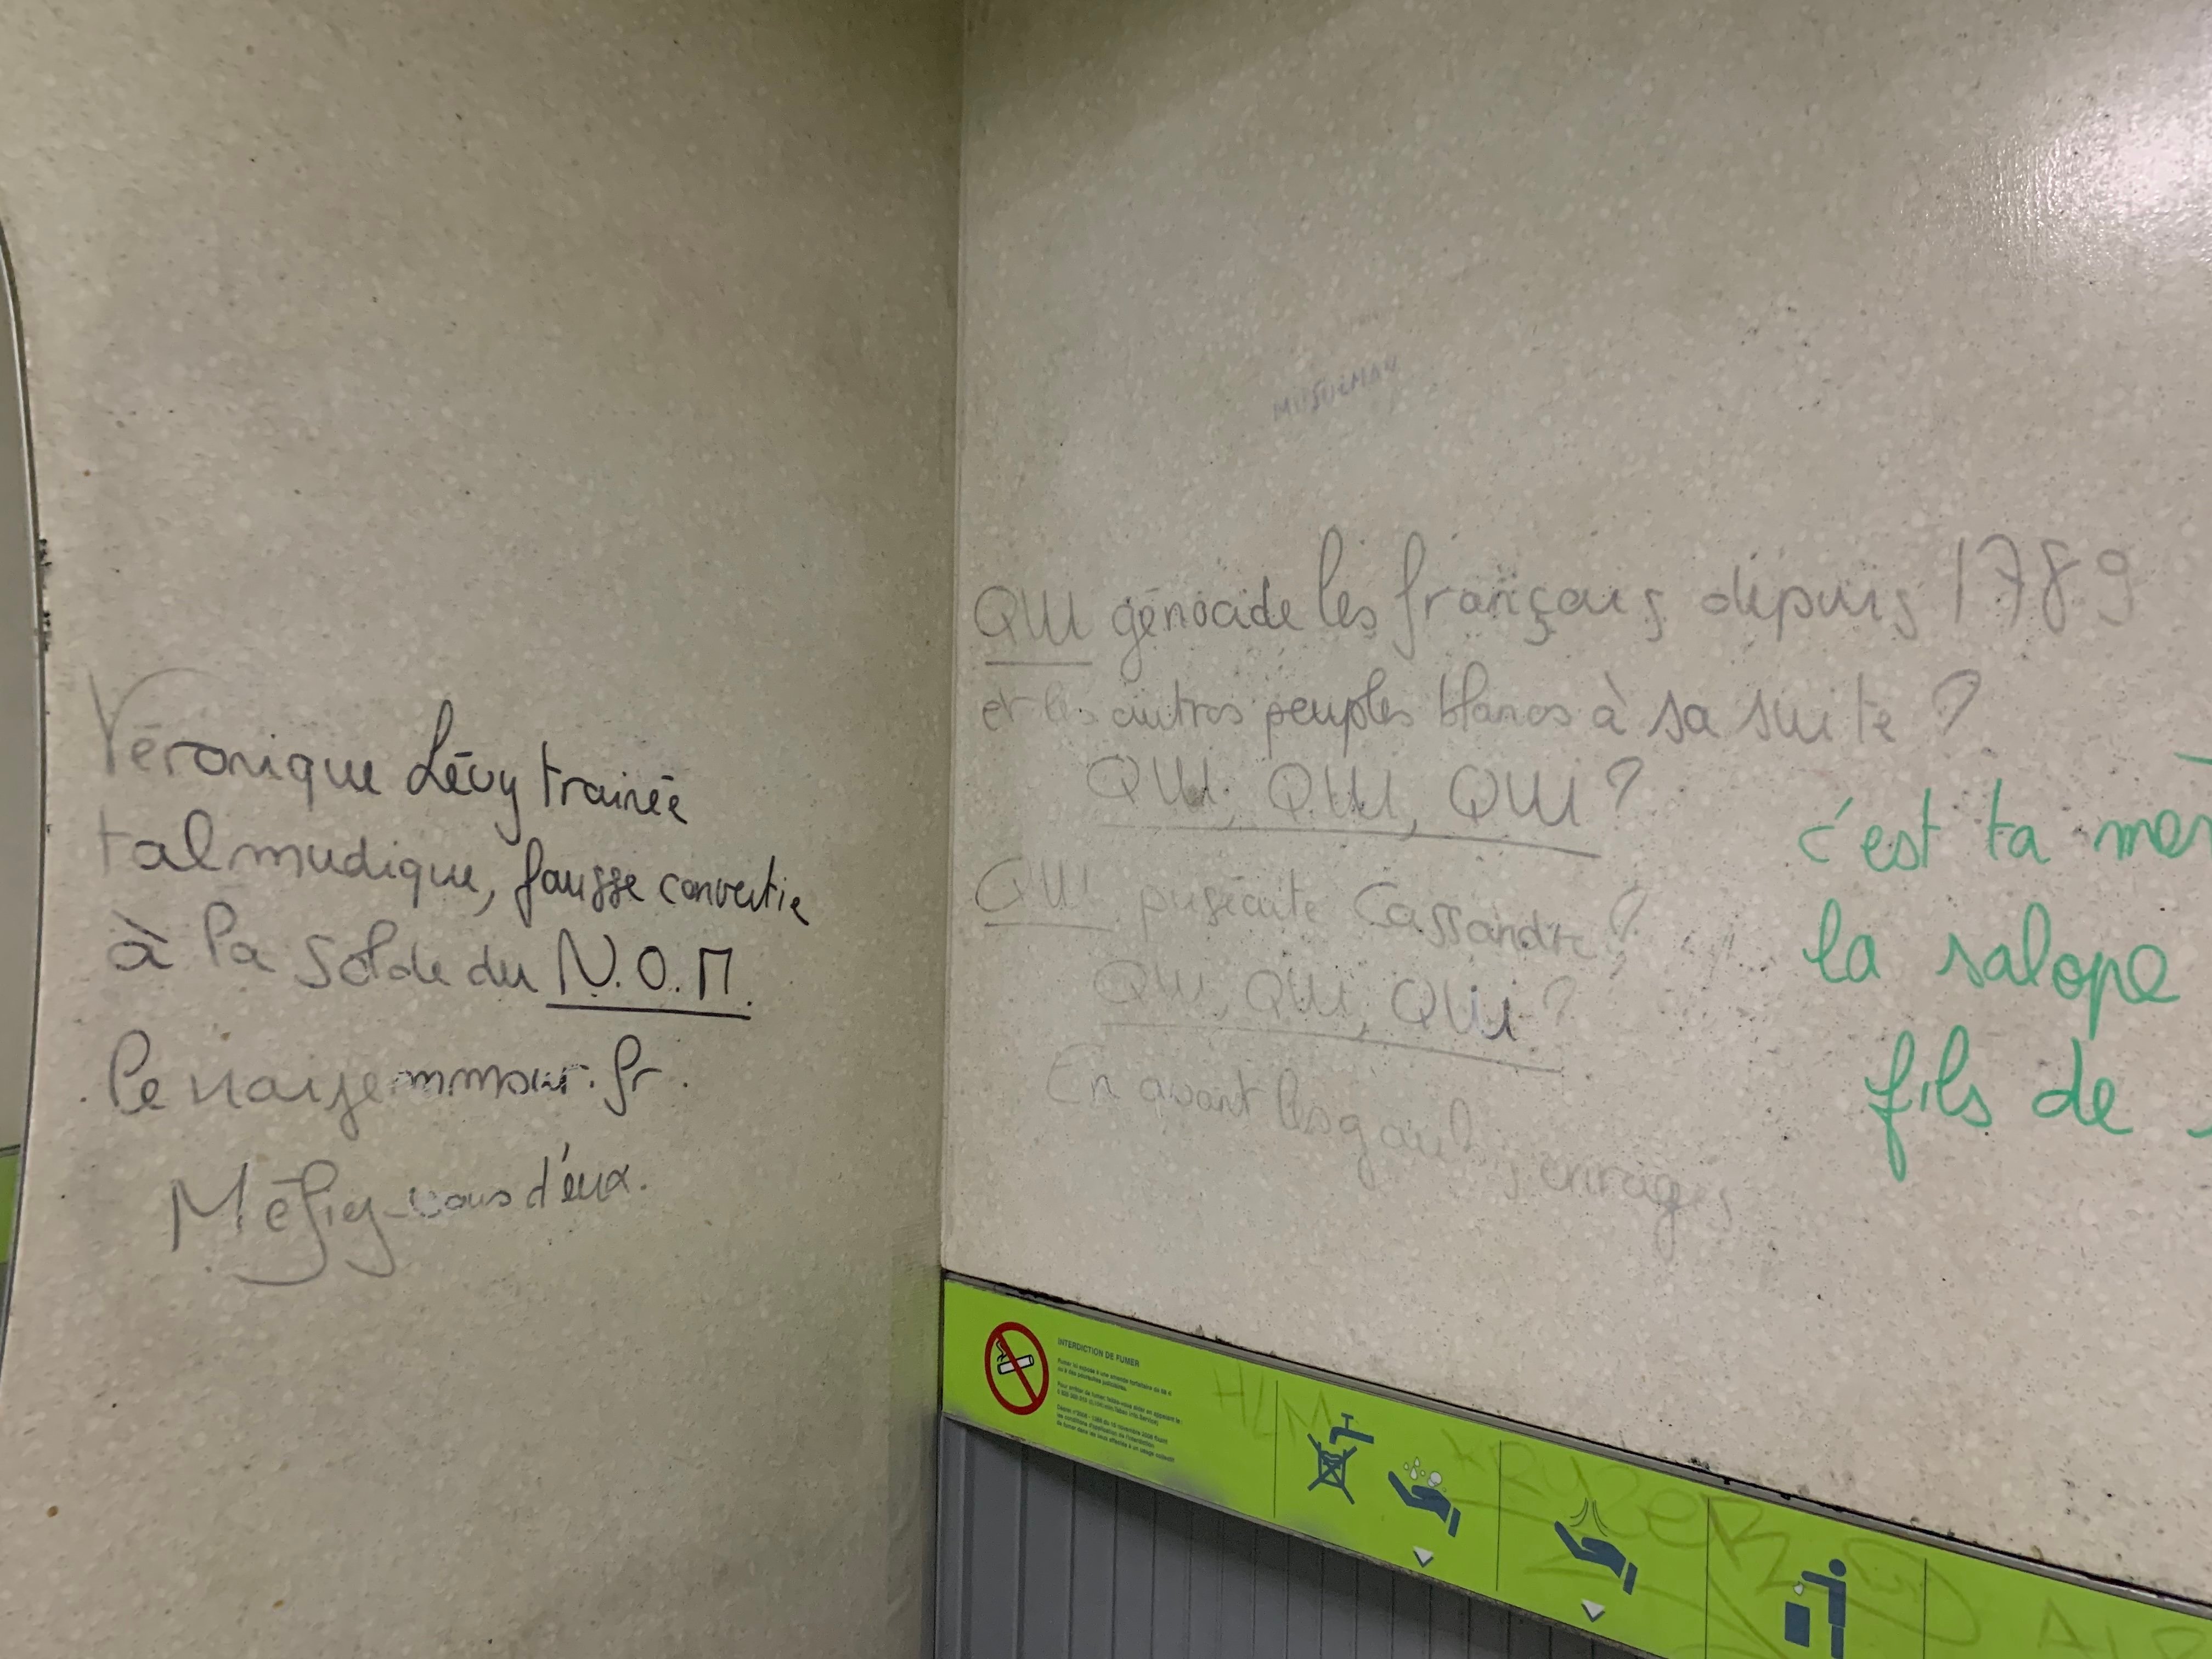 Véronique Lévy trainée
talmudique, fausse convertie
à la solde du N.O.M.
le vraizemmour.fr.
Méfiez-vous d'eux.
MUSULMAN
QUI génocide les français depuis 1789
et les autres peuples blancs à sa suite ?
QUI, QUI, QUI ?
QUI persécute Cassandre ?
QUI, QUI, QUI ?
En avant les gaulois enragés
c'est ta mer
la salope
fils de
INTERDICTION DE FUMER
HLM